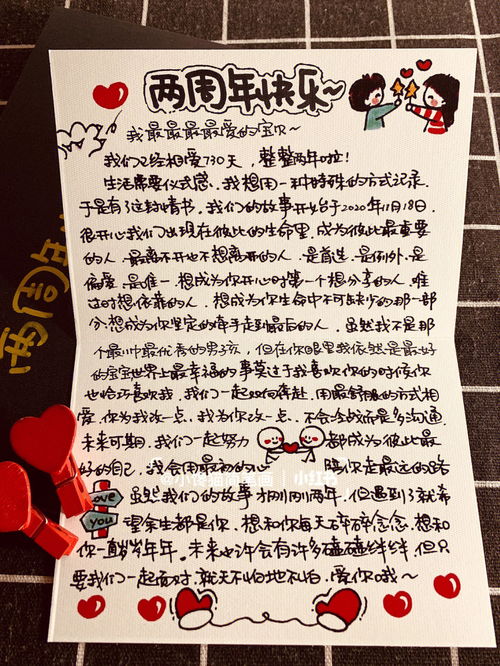 两周年快乐~
我最最最最爱的宝贝~
我们已经相爱730天，整整两年啦!
生活需要仪式感，我想用一种特殊的方式记录.
于是有了这封情书.我们的故事开始于2020年11月18日.
很开心我们出现在彼此的生命里，成为彼此最重要
的人、最离不开也不想离开的人、是首选、是例外、是
偏爱、是唯一.想成为你开心时第一个想分享的人、难
过时想依靠的人、想成为你生命中不可缺少的那一部
分、想成为你坚定的牵手走到最后的人，虽然我不是那
个最帅最优秀的男孩，但在你眼里我依然是最好
的宝宝世界上最幸福的事莫过于我喜欢你的时候你
也恰巧喜欢我，我们一起双向奔赴、用最舒服的方式相
爱、你为我改一点、我为你改一点、不会冷战而是多沟通.
未来可期，我们一起努力 都成为彼此最
好的自己、我会用最初的心 陪你走最远的路
@小馋猫简笔画 | 小红书
Love 虽然我们的故事才刚刚两年、但遇到了就希
you 望余生都是你、想和你每天碎碎念念、想和
你一直岁岁年年。未来也许会有许多磕磕绊绊，但只
要我们一起面对，就天不怕地不怕，爱你哦~